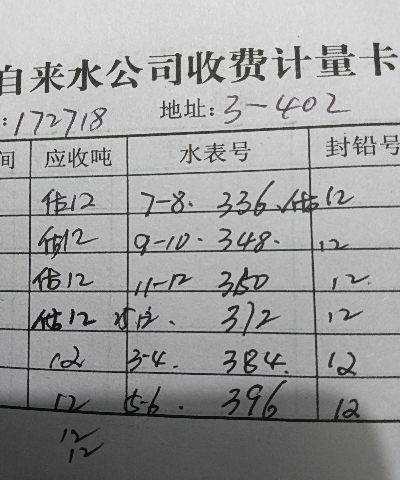 自来水公司收费计量卡
:172718 地址:3-402
间 应收吨 水表号 封铅号
估12 7-8. 336 估12
估12 9-10. 348. 12
估12 11-12 350 12.
估12 372 12
12 3-4. 384. 12
12 5-6. 396 12
12
12